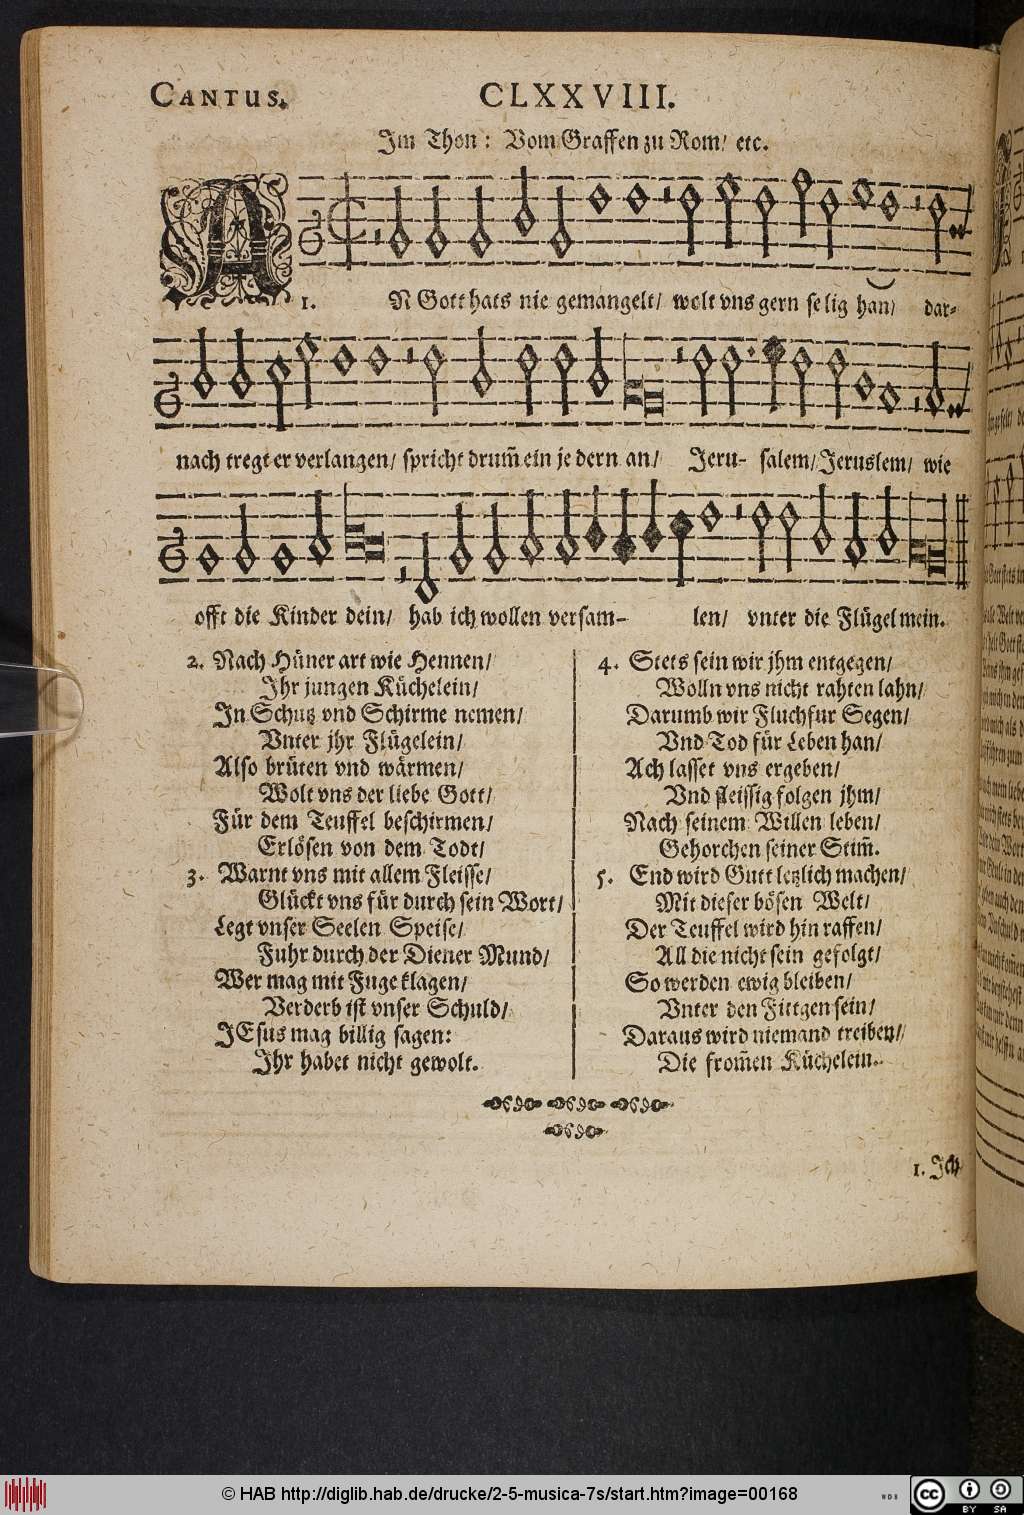 CANTUS.
CLXXVIII.
Im Thon: Vom Graffen zu Rom/ etc.
A
1. N Gott hats nie gemangelt/ wolt vns gern selig han/ dar-
nach tregt er verlangen/ spricht drum̃ ein jedern an/ Jeru- salem/ Jeruslem/ wie
offt die Kinder dein/ hab ich wollen versam- len/ vnter die Flügel mein.
2. Nach Hüner art wie Hennen/
Ihr jungen Küchelein/
In Schutz vnd Schirme nemen/
Vnter jhr Flügelein/
Also brüten vnd wärmen/
Wolt vns der liebe Gott/
Für dem Teuffel beschirmen/
Erlösen von dem Todt/
3. Warnt vns mit allem Fleisse/
Glückt vns für durch sein Wort/
Legt vnser Seelen Speise/
Fuhr durch der Diener Mund/
Wer mag mit Fuge klagen/
Verderb ist vnser Schuld/
JEsus mag billig sagen:
Ihr habet nicht gewolt.
4. Stets sein wir jhm entgegen/
Wolln vns nicht rahten lahn/
Darumb wir Fluch fur Segen/
Vnd Tod für Leben han/
Ach lasset vns ergeben/
Vnd fleissig folgen jhm/
Nach seinem Willen leben/
Gehorchen seiner Stim̃.
5. End wird Gutt letzlich machen/
Mit dieser bösen Welt/
Der Teuffel wird hin raffen/
All die nicht sein gefolgt/
So werden ewig bleiben/
Vnter den Fittgen sein/
Daraus wird niemand treiben/
Die from̃en Küchelein.
1. Ich
© HAB http://diglib.hab.de/drucke/2-5-musica-7s/start.htm?image=00168
WDB
cc BY SA